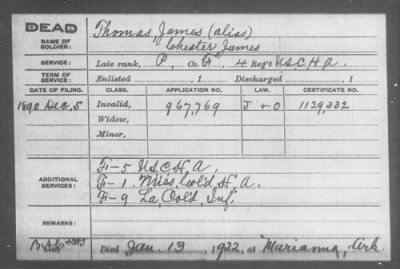 DEAD
NAME OF SOLDIER: Thomas, James (alias)
Chester James
SERVICE: Late rank, P, Co. G, 4 Reg't U.S.C.H.A.
TERM OF SERVICE: Enlisted , 1 Discharged , 1
DATE OF FILING. CLASS. APPLICATION NO. LAW. CERTIFICATE NO.
1890 Dec, 5 Invalid, 967,769 J+O 1129,332
Widow,
Minor,
ADDITIONAL SERVICES: F-5 U.S.C.H.A.
F-1. Miss. Col'd H.A.
F-9 La. Col'd Inf.
REMARKS:
Died Jan. 13, 1922, at Marianna, Ark.